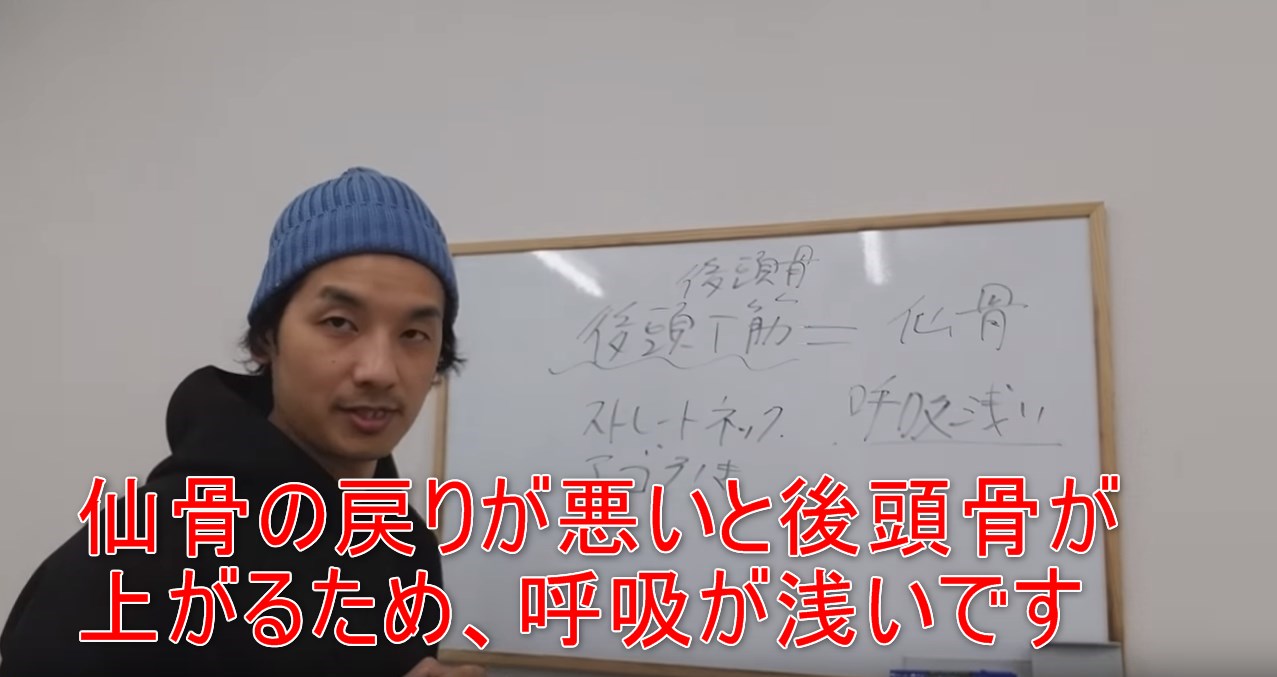 後頭骨
後頭下筋＝仙骨
ストレートネック
呼吸浅い
アゴ引き
仙骨の戻りが悪いと後頭骨が
上がるため、呼吸が浅いです